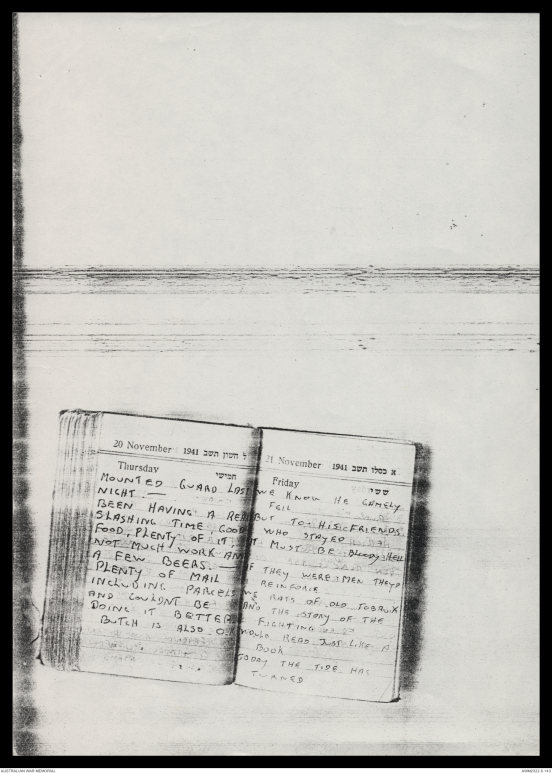 20 November 1941 ל חשון תשב
Thursday חמישי
MOUNTED GUARD LAST
NIGHT. —
BEEN HAVING A REAL
SLASHING TIME GOOD
FOOD, PLENTY OF IT,
NOT MUCH WORK AND
A FEW BEERS. —
PLENTY OF MAIL
INCLUDING PARCELS
AND COULDNT BE
DOING IT BETTER
BUTCH IS ALSO O.K
21 November 1941 א כסלו תשב
Friday ששי
WE KNOW HE GAMELY
FELL
BUT TO HIS FRIENDS
WHO STAYED
IT MUST BE BLOODY HELL
IF THEY WERE MEN THEYD
REINFORCE
WE RATS OF OLD TOBRUK
AND THE STORY OF THE
FIGHTING
WOULD READ JUST LIKE A
BOOK
TODAY THE TIDE HAS
TURNED
AUSTRALIAN WAR MEMORIAL